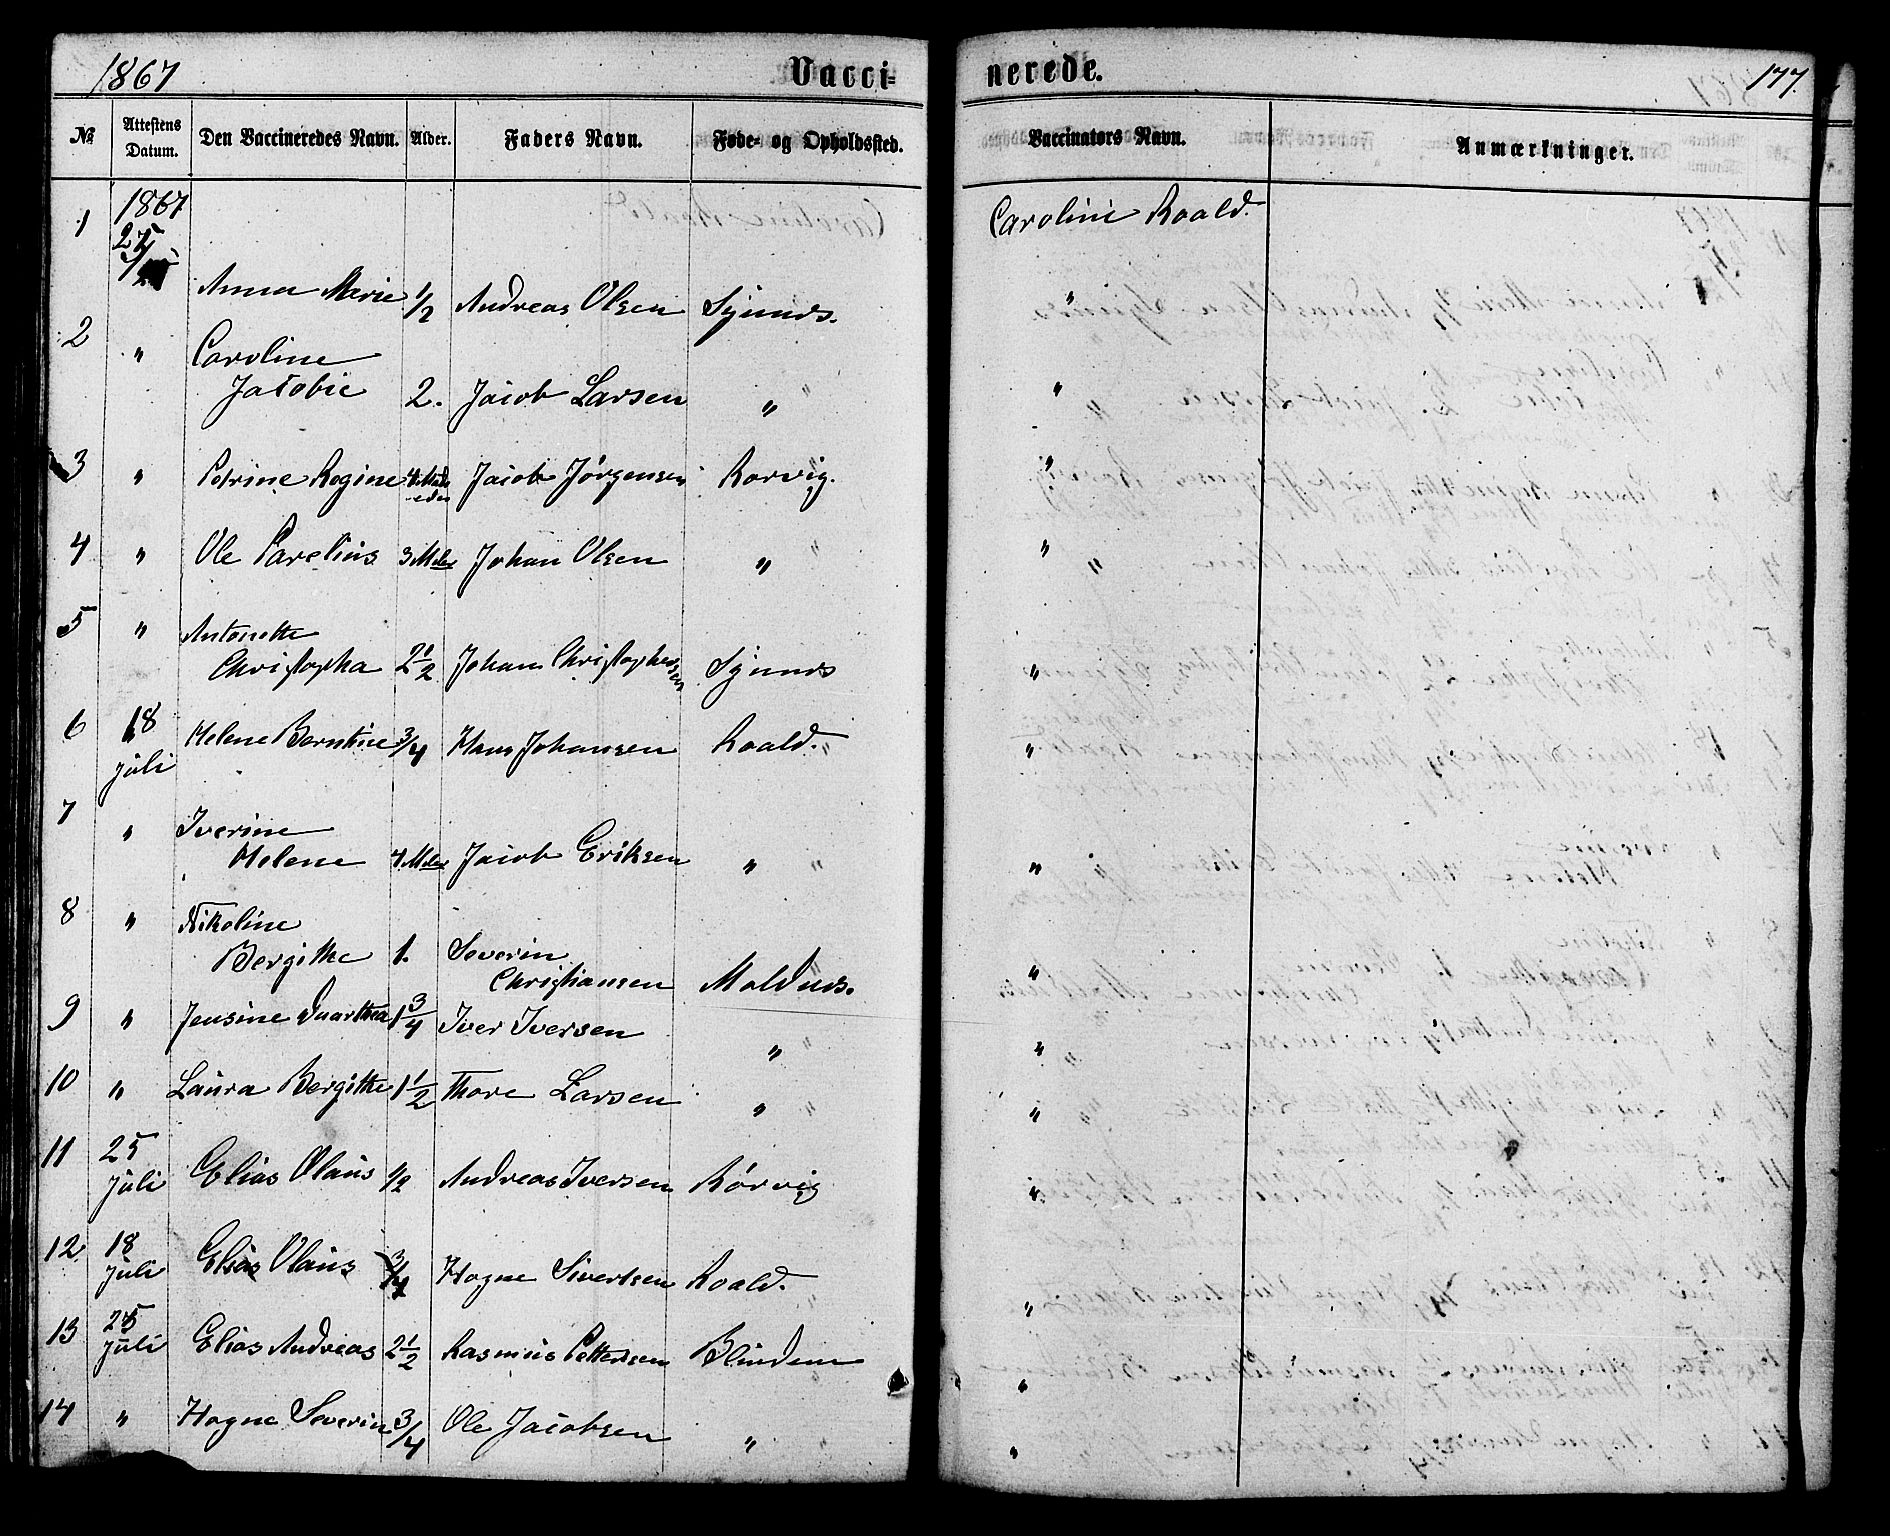 1867 Vacci- nerede. 177.
No. Attestens Datum. Den Vaccineredes Navn. Alder. Faders Navn. Føde- og Opholdssted. Vaccinators Navn. Anmærkninger.
1 1867 Caroline Roald.
Anna Marie 1/2 Andreas Olsen Synnes. "
2 " Caroline
Jacobie 2. Jacob Larsen " "
3 " Petrine Regine 4 Jacob Jørgensen Rørvig. "
4 " Ole Parelius 3 Johan Olsen " "
5 " Antonette
Christopha 2 1/2 Johan Christophersen Synnes "
6 18 Helene Berntine 3/4 Hans Johansen Roald. "
juli
7 " Iverine
Helene 4 Jacob Eriksen " "
8 " Nikoline
Bergithe 1. Severin
Christiansen Moldnes. "
9 " Jensine Duarthea 1 3/4 Iver Iversen " "
10 " Laura Bergithe 1 1/2 Thore Larsen " "
11 25
juli Elias Olaus 1/2 Andreas Iversen Rørvig "
12 18
juli Elias Olaus 3/4 Hogne Sivertsen Roald. "
13 25
juli Elias Andreas 2 1/2 Rasmus Pettersen Blindem "
14 " Hogne Severin 3/4 Ole Jacobsen " "